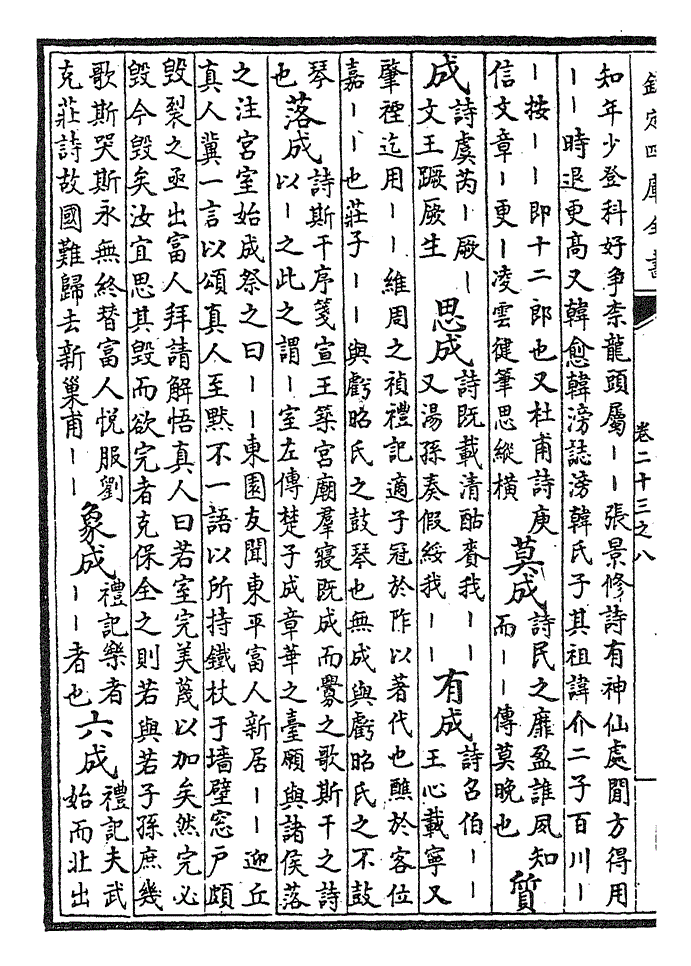 欽定四庫全書
卷二十三之八
知年少登科好争柰龍頭屬丨丨張景修詩有神仙處閒方得用
丨丨時退更高又韓愈韓滂誌滂韓氏子其祖諱介二子百川丨
丨按丨丨即十二郎也又杜甫詩庾
信文章丨更丨凌雲健筆思縱横
莫成
詩民之靡盈誰夙知
而丨丨傳莫晚也
質
成
詩虞芮丨厥丨
文王蹶厥生
思成
詩既載清酤賚我丨丨
又湯孫奏假綏我丨丨
有成
詩召伯丨丨
王心載寧又
肇禋迄用丨丨維周之禎禮記適子冠於阼以著代也醮於客位
嘉丨丨也莊子丨丨與虧昭氏之鼓琴也無成與虧昭氏之不鼓
琴
也
落成
詩斯干序箋宣王築宮廟羣寢既成而釁之歌斯干之詩
以丨之此之謂丨室左傳楚子成章華之臺願與諸侯落
之注宮室始成祭之曰丨丨東園友聞東平富人新居丨丨迎丘
真人冀一言以頌真人至默不一語以所持鐵杖于墻壁窓户頗
毁裂之亟出富人拜請解悟真人曰若室完美蔑以加矣然完必
毁今毁矣汝宜思其毁而欲完者克保全之則若與若子孫庶幾
歌斯哭斯永無終替富人悦服劉
克莊詩故國難歸去新巢甫丨丨
象成
禮記樂者
丨丨者也
六成
禮記夫武
始而北出